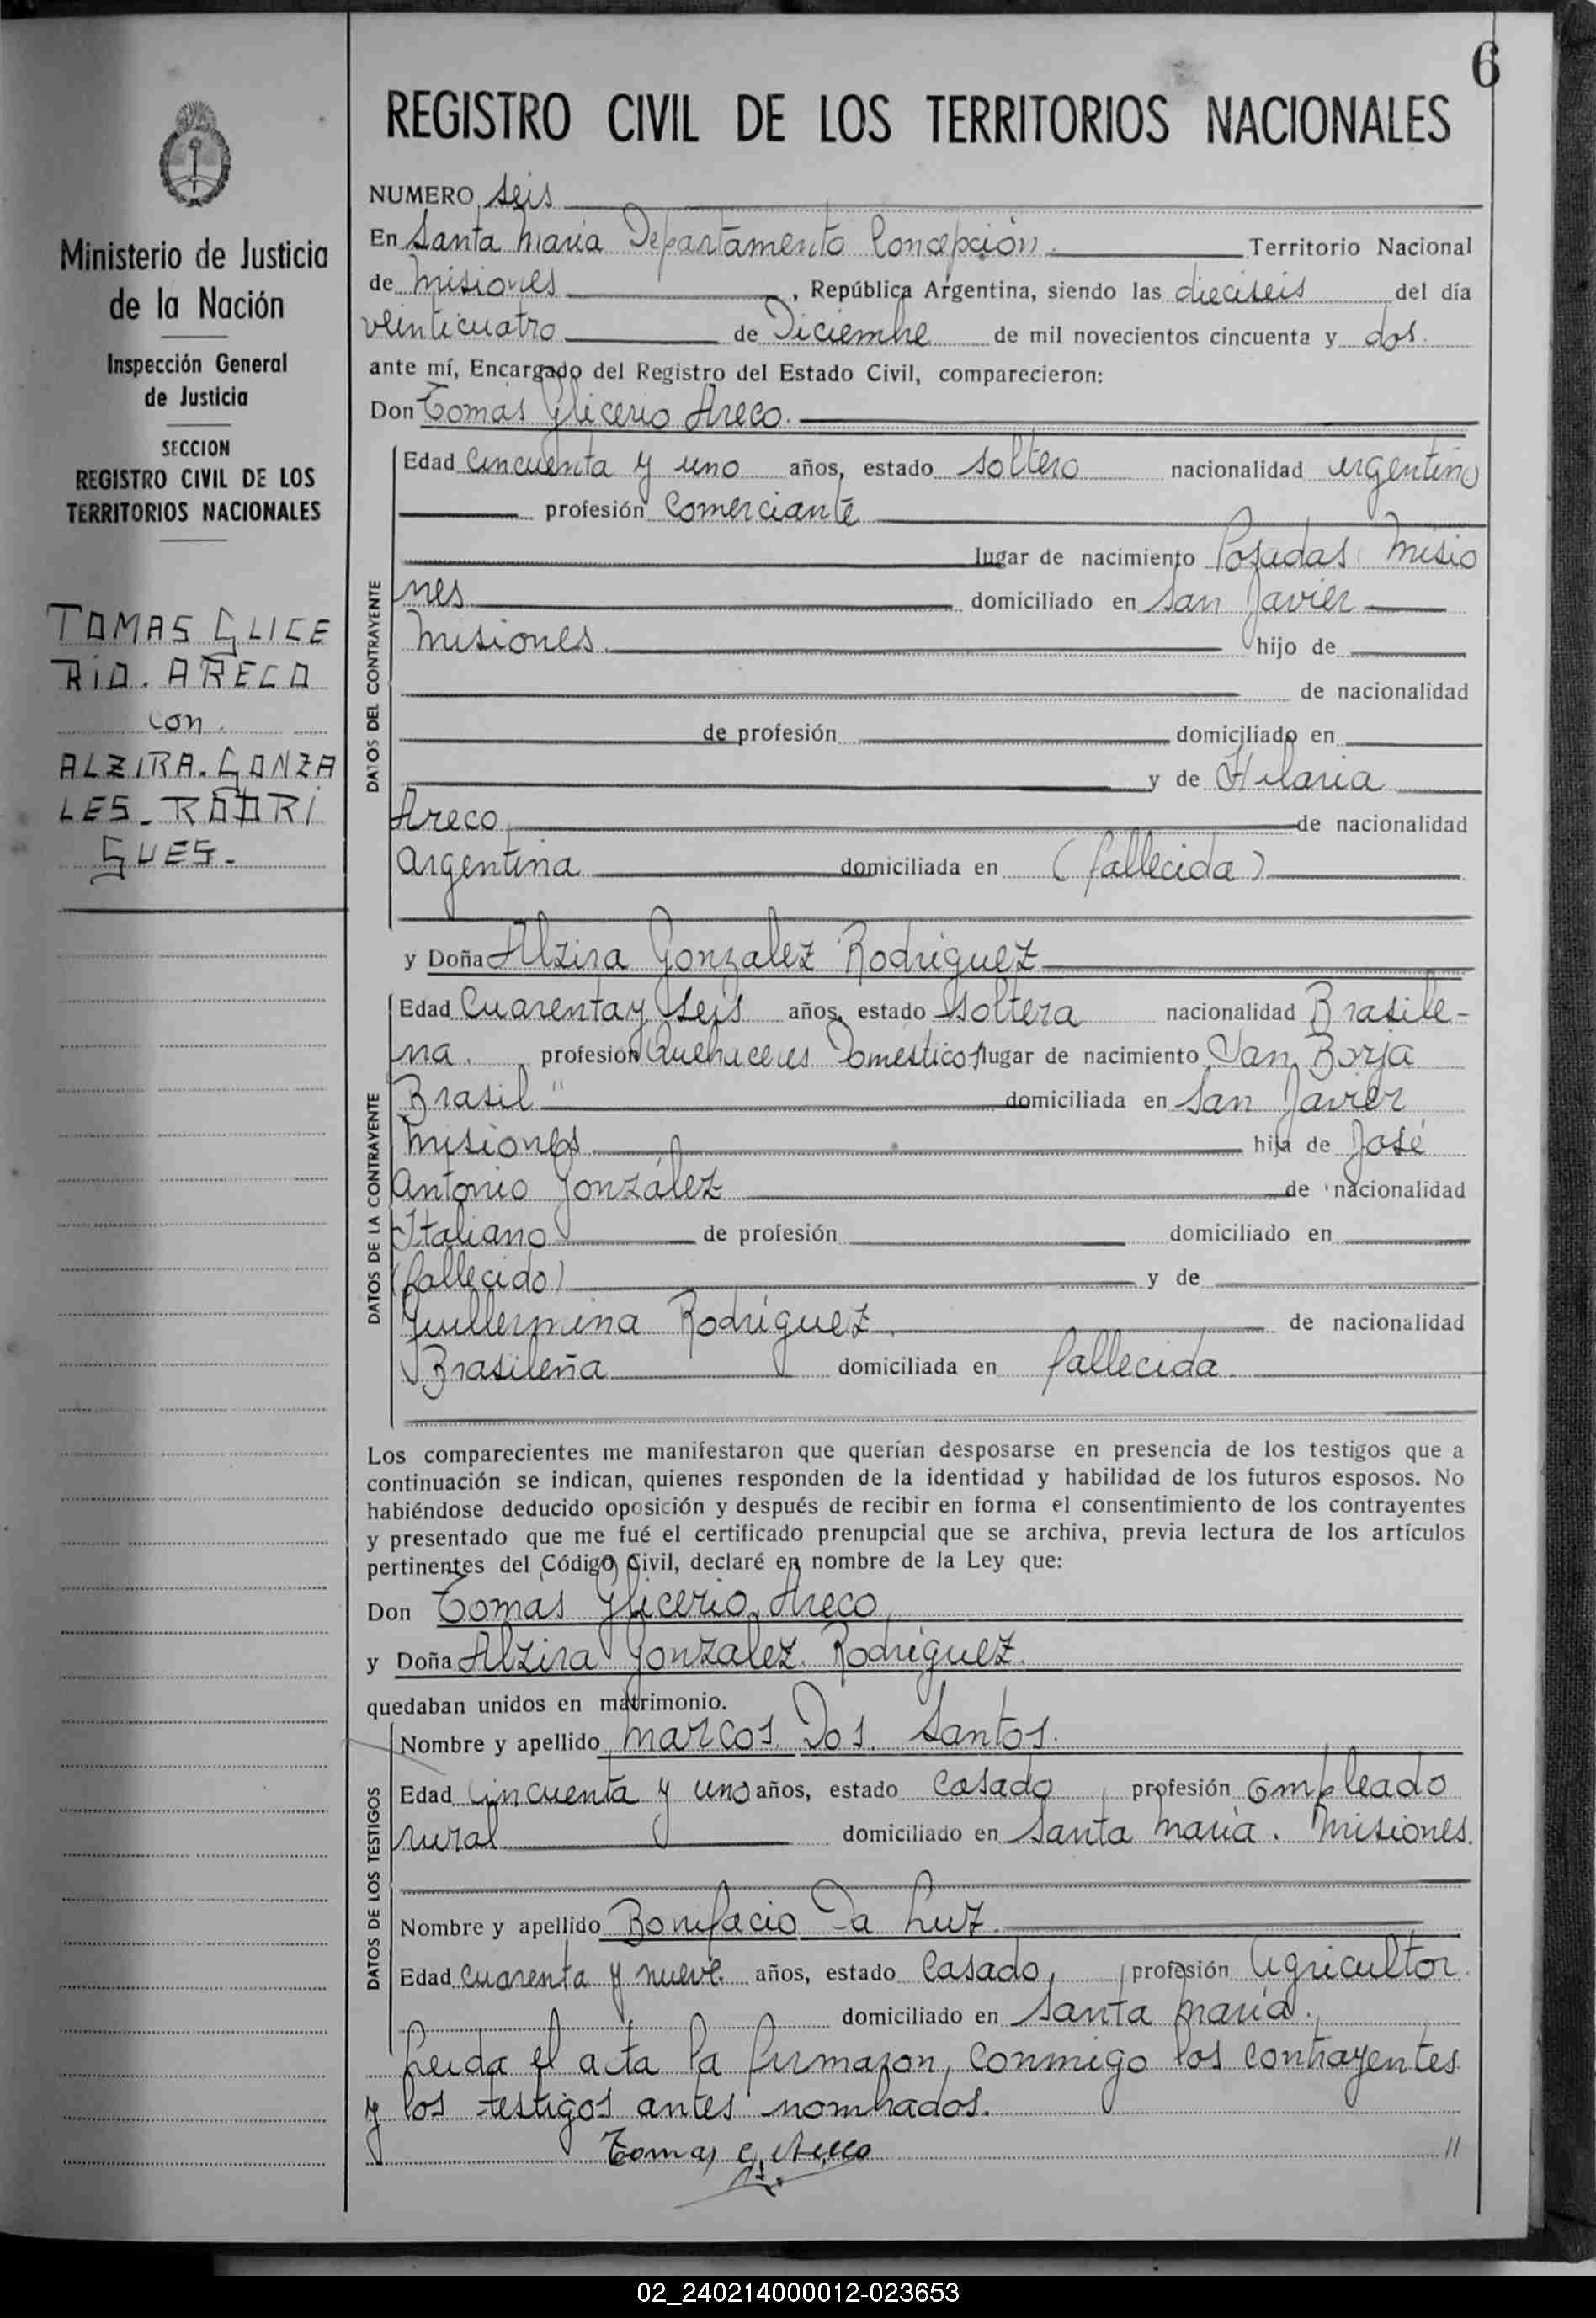 6
REGISTRO CIVIL DE LOS TERRITORIOS NACIONALES
Ministerio de Justicia
de la Nación
Inspección General
de Justicia
SECCION
REGISTRO CIVIL DE LOS
TERRITORIOS NACIONALES
TOMAS GLICE
RIO. ARECO
con
ALZIRA. GONZA
LES - RODRI
GUES.-
NUMERO seis
En Santa María Departamento Concepción. Territorio Nacional
de Misiones, República Argentina, siendo las dieciseis del día
veinticuatro de Diciembre de mil novecientos cincuenta y dos.
ante mí, Encargado del Registro del Estado Civil, comparecieron:
Don Tomás Glicerio Areco.
DATOS DEL CONTRAYENTE
Edad Cincuenta y uno años, estado soltero nacionalidad argentino
profesión Comerciante
lugar de nacimiento Posadas Misio
nes domiciliado en San Javier
Misiones. hijo de
de nacionalidad
de profesión domiciliado en
y de Hilaria
Areco, de nacionalidad
argentina domiciliada en (fallecida)
y Doña Alzira Gonzalez Rodriguez
DATOS DE LA CONTRAYENTE
Edad Cuarenta y seis años, estado soltera nacionalidad Brasile-
na. profesión Quehaceres Domesticos lugar de nacimiento San Borja
Brasil" domiciliada en San Javier
Misiones hija de José
Antonio González de nacionalidad
Italiano de profesión domiciliado en
(fallecido) y de
Guillermina Rodríguez. de nacionalidad
Brasileña domiciliada en fallecida.
Los comparecientes me manifestaron que querían desposarse en presencia de los testigos que a
continuación se indican, quienes responden de la identidad y habilidad de los futuros esposos. No
habiéndose deducido oposición y después de recibir en forma el consentimiento de los contrayentes
y presentado que me fué el certificado prenupcial que se archiva, previa lectura de los artículos
pertinentes del Código Civil, declaré en nombre de la Ley que:
Don Tomás Glicerio Areco,
y Doña Alzira Gonzalez Rodriguez.
quedaban unidos en matrimonio.
DATOS DE LOS TESTIGOS
Nombre y apellido Marcos Dos Santos.
Edad Cincuenta y uno años, estado Casado, profesión Empleado
rural domiciliado en Santa María. Misiones.
Nombre y apellido Bonifacio Da Luz.
Edad cuarenta y nueve años, estado Casado, profesión Agricultor.
domiciliado en Santa María.
Leida el acta la firmaron, conmigo los contrayentes
y los testigos antes nombrados.
Tomas G. Areco //
02_240214000012-023653